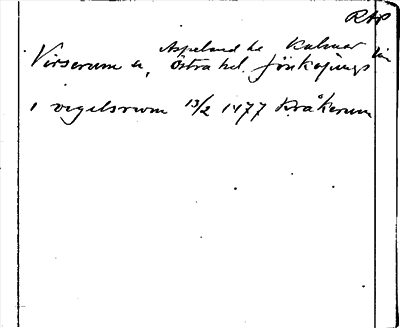 RAP
Aspeland hd Kalmar län
Virserum sn, Östra hd. Jönköpings
i vigelsrwm 13/2 1477 Kråkerum